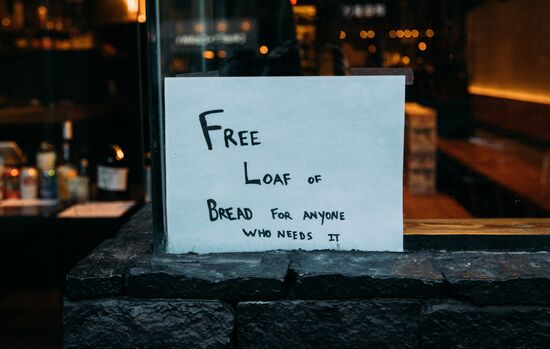 FREE
LOAF OF
BREAD FOR ANYONE
WHO NEEDS IT